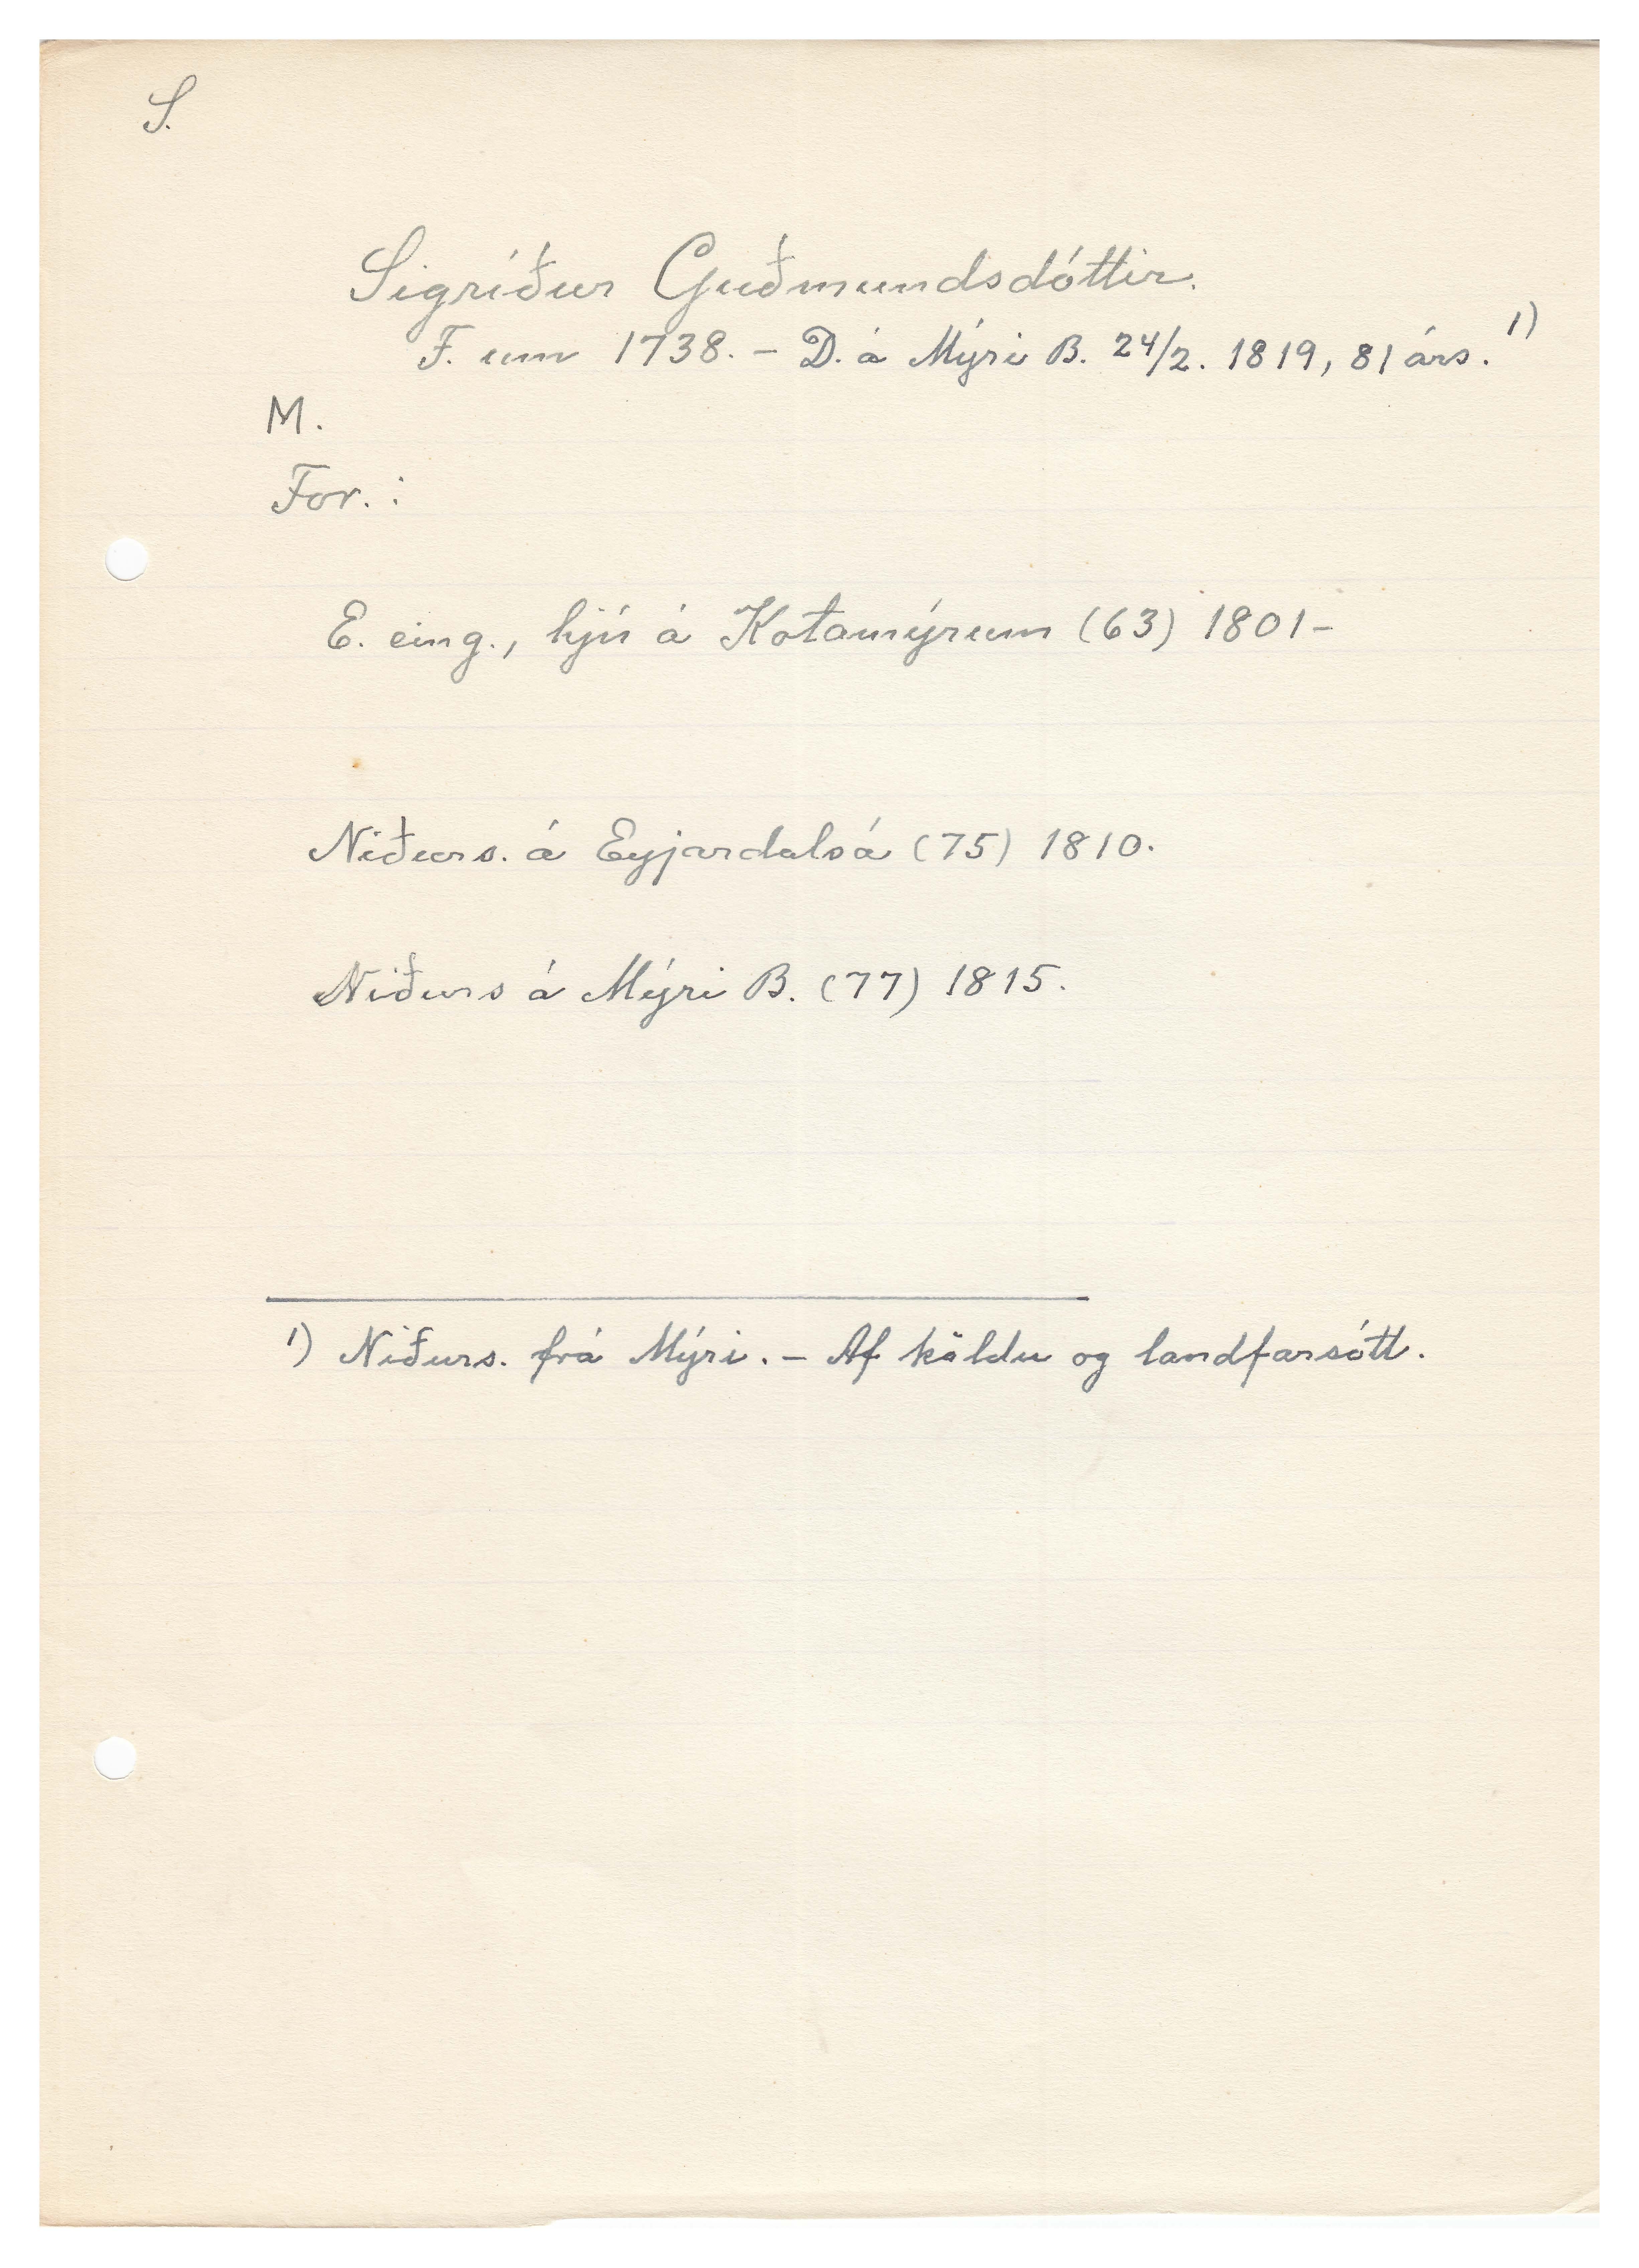 S.
Sigríður Guðmundsdóttir.
F. um 1738. - D. á Mýri B. 24/2. 1819, 81 árs. 1)
M.
For. :
E. eing., hjú á Kotamýrum (63) 1801-
Niðurs. á Eyjardalsá (75) 1810.
Niðurs á Mýri B. (77) 1815.
1) Niðurs. frá Mýri. - Af köldu og landfarsótt.